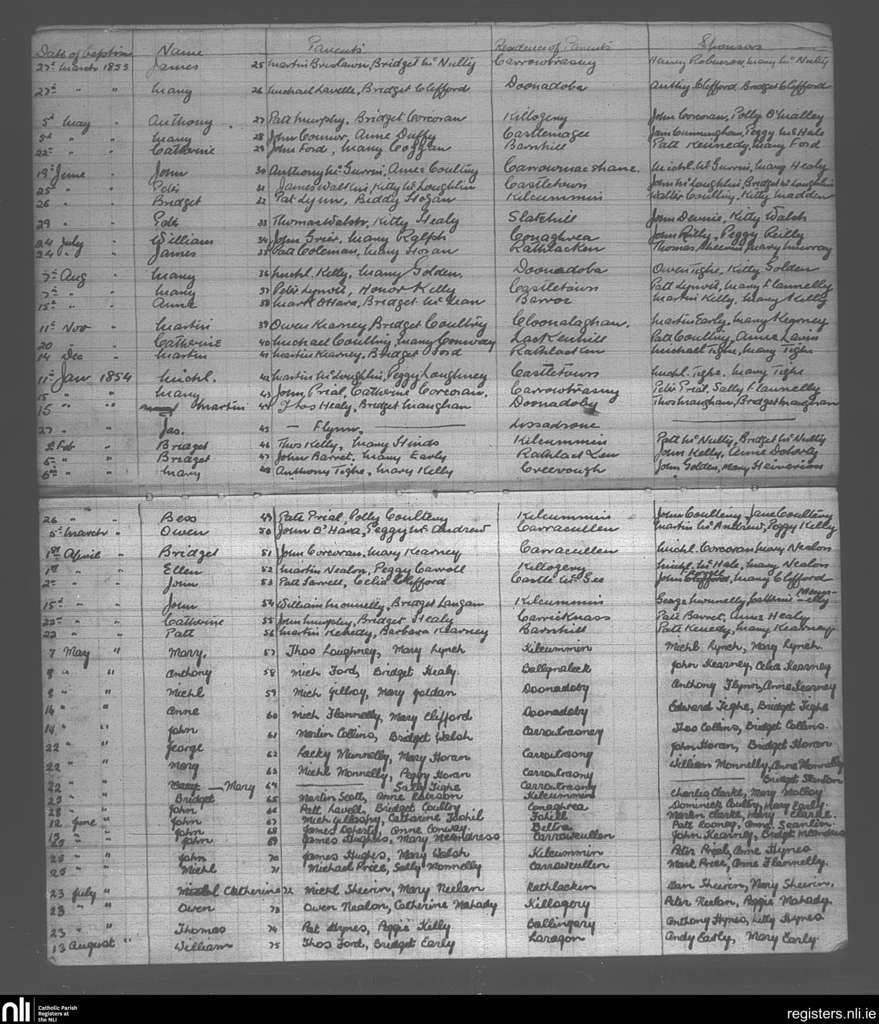 Date of Baptism Name Parents Residence of Parents Sponsors
27th March 1853 James 25 Martin Breslawn, Bridget McNulty Carrowtranny Henry Robinson, Mary McNulty
27th " " Mary 26 Michael Lavelle, Bridget Clifford Doonadoba Anthy Clifford Bridget Clifford
5th May " Anthony 27 Patt Murphy, Bridget Corcoran Killogeny John Corcoran, Polly O'Malley
5th " " Mary 28 John Connor, Anne Duffy Castlemagee Jam Cunningham, Peggy McHale
22nd " " Catherine 29 John Ford, Mary Coggan Barnhill Patt Kennedy, Mary Ford
19th June " John 30 Anthony McGurrin, Anne Coulting Carrowmacshane. Michl. McGurrin, Mary Healy
25th " " Peter 31 James Watkins, Kitty McLoughlin Castletown John McLoughlin, Bridget McLoughlin
26 " " Bridget 32 Pat Lynn, Biddy Hogan Kilcummin Walter Coulting, Kitty Madden
29 " " Peter 33 Thomas Walsh, Kitty Healy Slatehill John Dennis, Kitty Walsh
24 July " William 34 John Grier, Mary Ralph Conaghrea John Reilly, Peggy Reilly
24 " " James 35 Patt Coleman, Mary Hogan Rathlacken Thomas Mary Murray
7th Aug " Mary 36 Michl. Kelly, Mary Golden. Doonadoba Owen Tighe, Kitty Golden
7th " " Mary 37 Peter Lynott, Honor Kelly Castletown Patt Lynott, Mary Flannelly
15th " " Anne 38 Mark O'Hara, Bridget McLean Barroe Martin Kelly, Mary Kelly
11th Nov " Martin 39 Owen Kearney, Bridget Coultry Cloonalaghan. Martin Early, Mary Kearney
20 " " Catherine 40 Michael Coulting, Mary Conway Lackenhill Patt Coulting, Anne Lavin
14 Dec " Martin 41 Martin Kearney, Bridget Ford Rathlacken Michael Tighe, Mary Tighe
11th Jan. 1854 Michl. 42 Martin McLoughlin, Peggy Loughney Castletown Michl. Tighe, Mary Tighe
15 " " Mary 43 John Prial, Catherine Corcoran. Carrowtranny Peter Prial, Sally Flannelly
15 " " Martin 44 Thos Healy, Bridget Maughan Doonadoby Thos Maughan, Bridget Maughan
27 " " Jas. 45 — Flynn. Lissadrone
2 Feb " Bridget 46 Thos Kelly, Mary Hinds Kilcummin Patt McNulty, Bridget McNulty
5th " " Bridget 47 John Barret, Mary Early Rathlacken John Kelly, Annie Doherty
6th " " Mary 48 Anthony Tighe, Mary Kelly Creevough John Golden, Mary
26 " " Bess 49 Patt Prial, Polly Coulteny Kilcummin John Coulteny, Jane Coulteny
5th March " Owen 50 John O'Hara, Peggy McAndrew Carracullen Martin McAndrew, Peggy Kelly
1st April " Bridget 51 John Corcoran, Mary Kearney Carracullen Michl. Corcoran, Mary Nealon
1st " " Ellen 52 Martin Nealon, Peggy Carroll Killogeny Michl. McHale, Mary Nealon
2nd " " John 53 Patt Farrell, Celia Clifford Castle McGee John Clifford, Mary Clifford
15th " " John 54 William Monnelly, Bridget Langan Kilcummin George Munnelly, Catherine Munnelly
22nd " " Catherine 55 John Murphy, Bridget Healy Carricknass Patt Barret, Anne Healy
22 " " Patt 56 Martin Kenedy, Barbara Kearney Barnhill Patt Kenedy, Mary Kearney
7 May " Mary. 57 Thos Loughney, Mary Lynch Kilcummin Michl Lynch, Mary Lynch
8 " " Anthony 58 Mich Ford, Bridget Healy. Ballynaleck John Kearney, Celia Kearney
8 " " Michl 59 Mich Gilboy, Mary Goldan Doonadoby Anthony Flynn, Anne Kearney
14 " " Anne 60 Mich Flannelly, Mary Clifford Doonadoby Edward Tighe, Bridget Tighe
14 " " John 61 Martin Collins, Bridget Walsh Carrowtraoney Thos Collins, Bridget Collins.
22 " " George 62 Lacky Munnelly, Mary Horan Carrowtraony John Horan, Bridget Horan
22 " " Mary 63 Michl Monnelly, Peggy Horan Carrowtraony William Monnelly, Anne Monnelly
22 " " Mary 64 Sally Tighe Carrowtraony Bridget
28 " " Bridget 65 Martin Scott, Anne Kilcummin Charles Clarke, Mary Molloy
28 " " John 66 Patt Lavell, Bridget Coultry Conaghrea Dominick Coultry, Mary Early.
12 June " John 67 Mich Gillespy, Catharine Fohil Fohill Martin Clarke, Mary Clarke
John 68 James Doherty, Anne Conway. Beltra Patt Rooney, Anne Scanlin
John 69 James Hughes, Mary Carrowcullen John Kearney, Bridget
25 " " John 70 James Hughes, Mary Walsh Kilcummin Peter Priel, Anne Hynes
25 " " Michl 71 Michael Price, Sally Monnelly Carrowcullen Mark Price, Anne Flannelly.
23 July " Catherine 72 Michl Sheerin, Mary Neelan Rathlacken Dan Sheerin, Mary Sheerin.
23 " " Owen 73 Owen Nealon, Catherine Mahady Killogery Peter Neelan, Peggie Mahady.
23 " " Thomas 74 Pat Hynes, Peggie Kelly Ballingary Anthony Hynes, Lilly Hynes
13 August " William 75 Thos Ford, Bridget Early Laragon Andy Early, Mary Early
nli Catholic Parish
Registers at
the NLI
registers.nli.ie